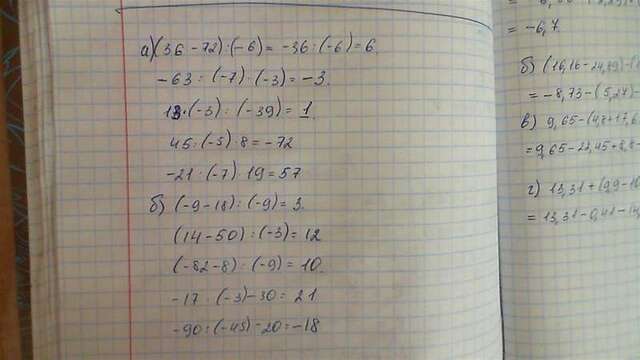 а) (36 - 72) : (-6) = -36 : (-6) = 6.
-63 : (-7) · (-3) = -3.
13 · (-3) : (-39) = 1.
45 : (-5) · 8 = -72
-21 · (-7) · 19 = 57
б) (-9 - 18) : (-9) = 3.
(14 - 50) : (-3) = 12
(-82 - 8) : (-9) = 10.
-17 · (-3) - 30 = 21
-90 : (-45) - 20 = -18
= -6,7
б) (16,16 -
= -8,73 - (5,27) -
в) 9,65 - (4,8 + 17,6
= 9,65 - 22,45 + 8,8 -
г) 13,31 + (9,9 - 10
= 13,31 - 0,41 - 14,